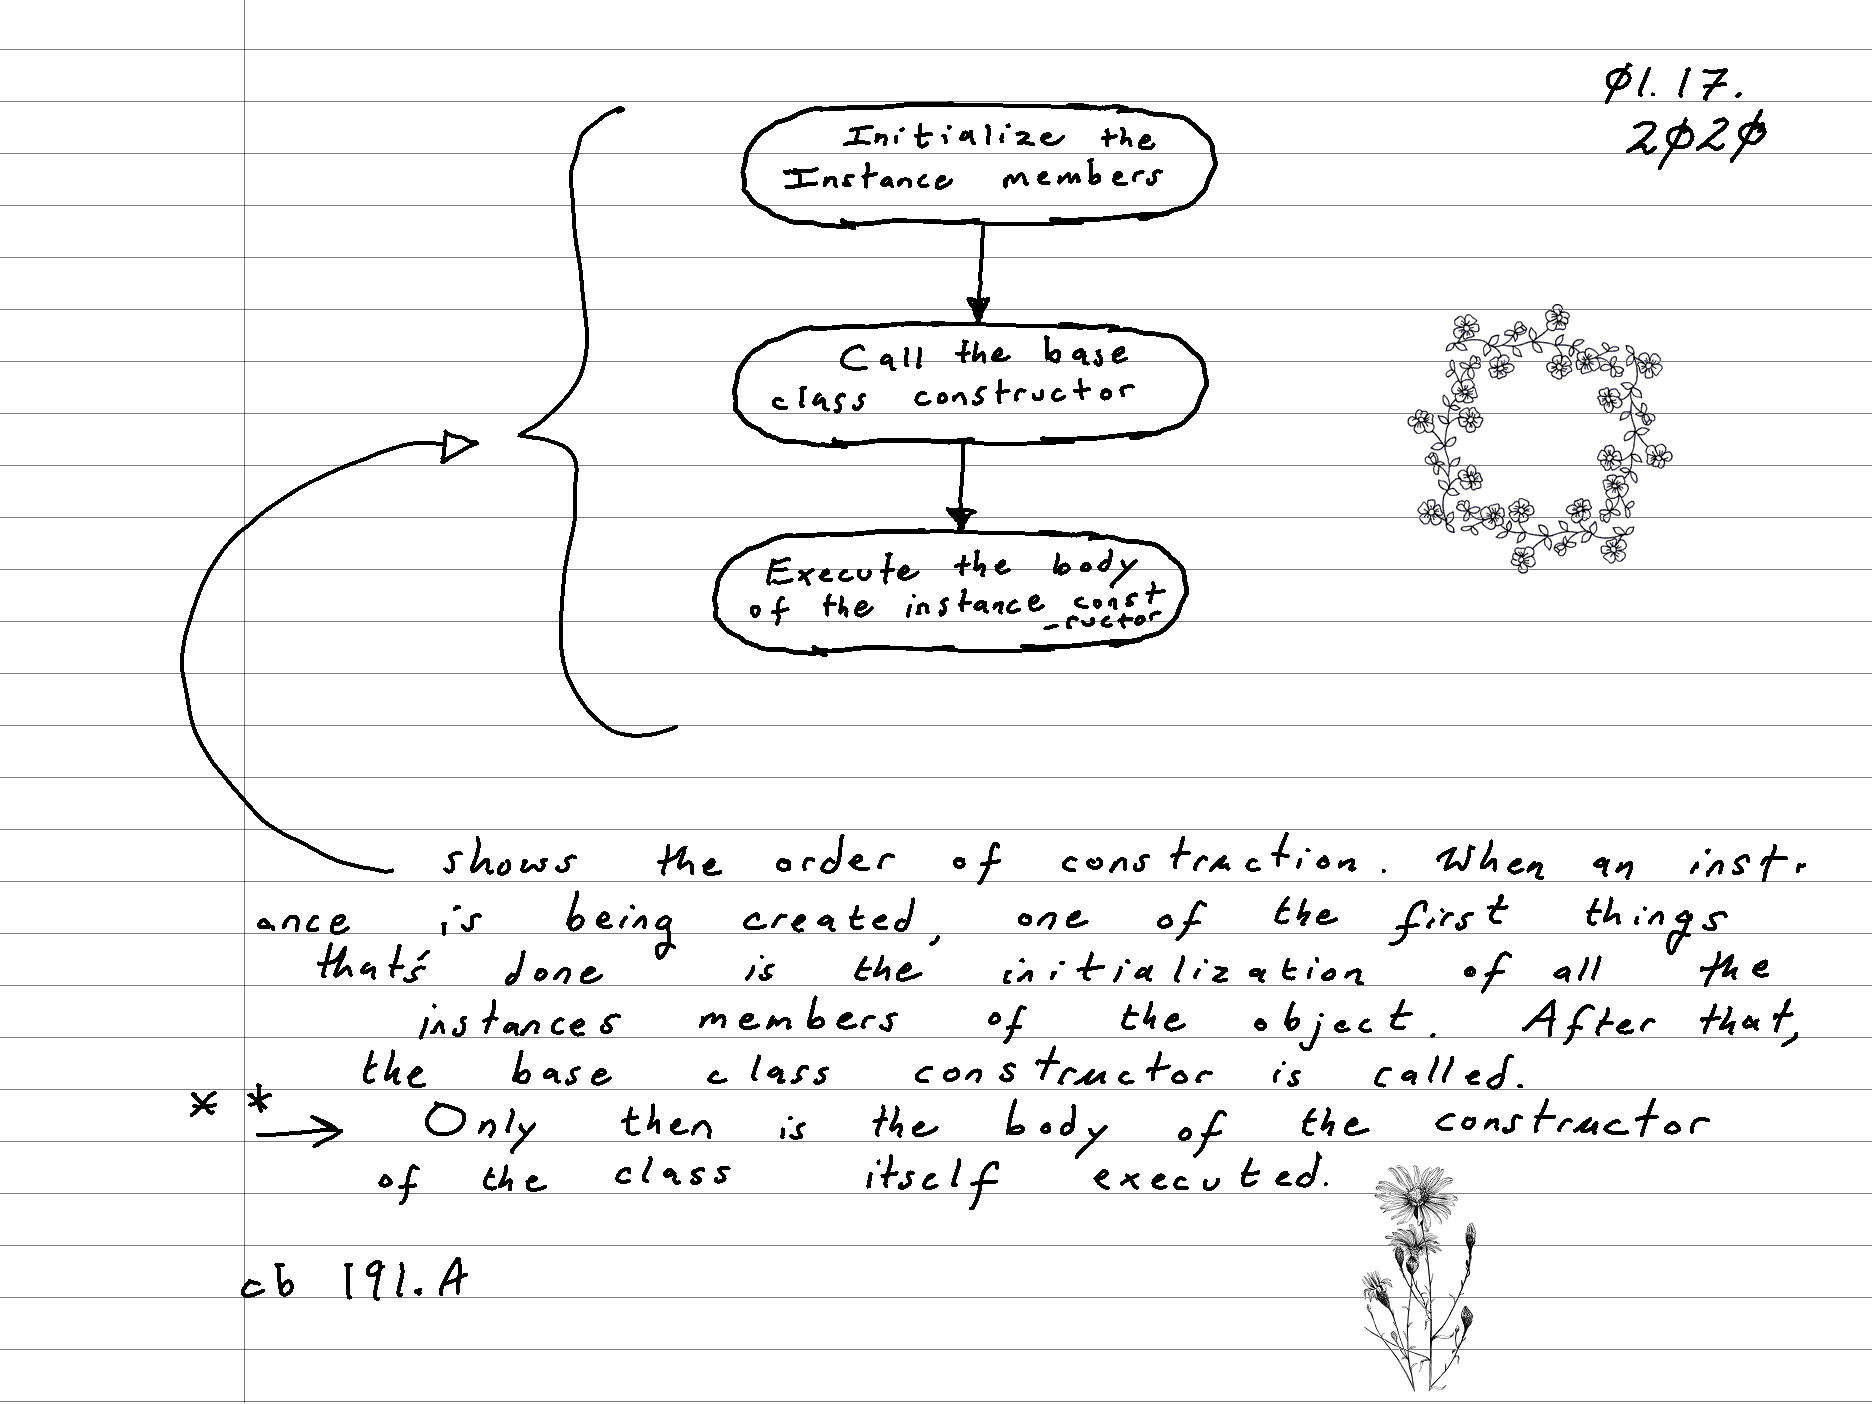 Ø1.17.
2Ø2Ø
Initialize the
Instance members
Call the base
class constructor
Execute the body
of the instance const
-ructor
shows the order of construction. When an inst-
ance is being created, one of the first things
that's done is the initialization of all the
instances members of the object. After that,
the base class constructor is called.
* *
Only then is the body of the constructor
of the class itself executed.
cb 191.A